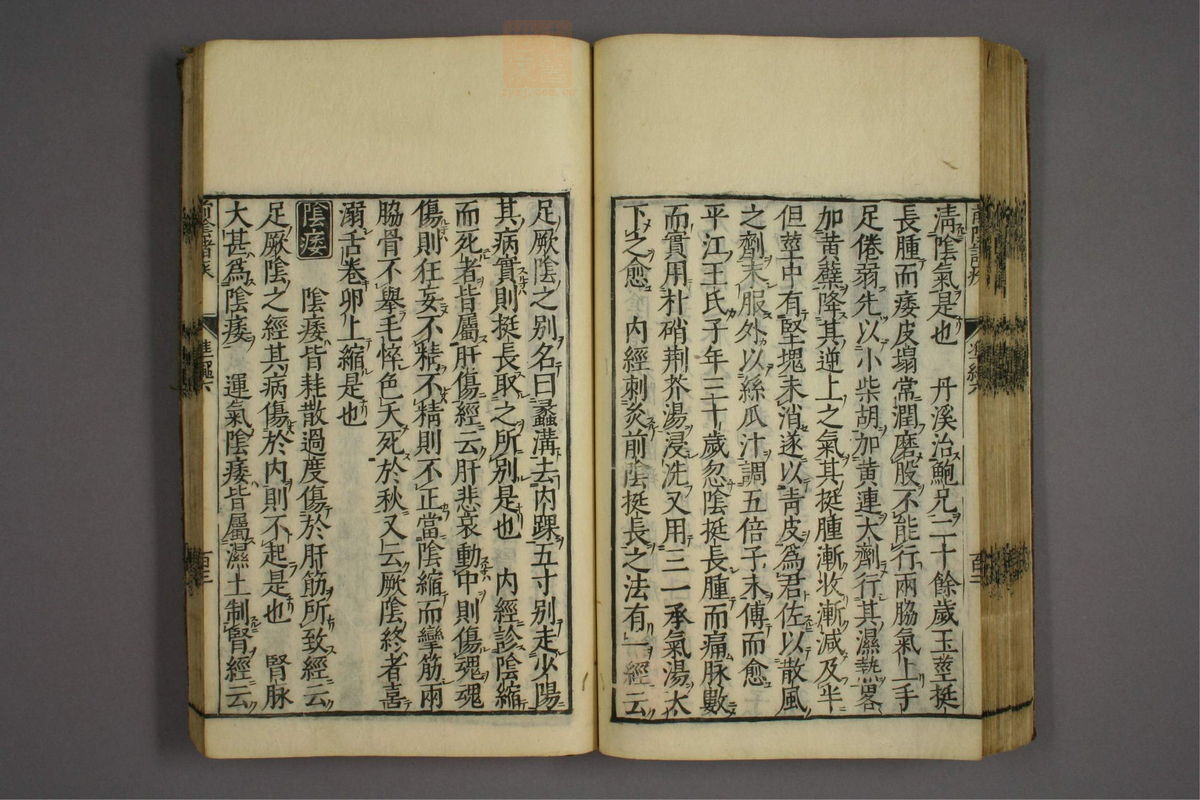 淸陰氣是也　丹溪治鮑兄二十餘歲玉莖挺
長腫而痿皮塌常潤磨股不能行兩脇氣上手
足倦弱先以小柴胡加黃連大劑行其濕熱畧
加黃蘗降其逆上之氣其挺腫漸收漸減及半
但莖中有堅塊未消遂以靑皮爲君佐以散風
之劑末服外以絲瓜汁調五倍子末傅而愈
平江王氏子年三十歲忽陰挺長腫而痛脉數
而實用朴硝荆芥湯浸洗又用三一承氣湯大
下之愈　內經刺灸前陰挺長之法有一經云
足厥陰之別名曰蠡溝去內踝五寸別走少陽
其病實則挺長取之所別是也　內經診陰縮
而死者皆屬肝傷經云肝悲哀動中則傷魂魂
傷則狂妄不精不精則不正當陰縮而攣筋兩
脇骨不舉毛悴色夭死於秋又云厥陰終者喜
溺舌卷卵上縮是也
陰痿　陰痿皆耗散過度傷於肝筋所致經云
足厥陰之經其病傷於內則不起是也　腎脉
大甚爲陰痿　運氣陰痿皆屬濕土制腎經云